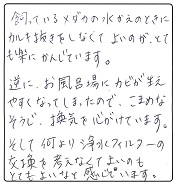 飼っているメダカの水かえのときに
カルキ抜きをしなくてよいのが、とて
も楽にかんじています。
逆に、お風呂場にカビが生え
やすくなってしまったので、こまめな
そうじ、換気を心がけています。
そして何より浄水フィルターの
交換を考えなくてよいのも
とてもよいなと感じています。